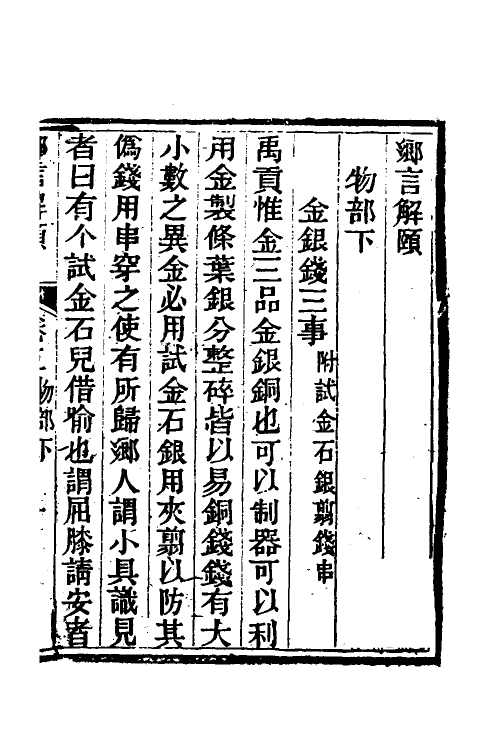 鄉言解頤
物部下
金銀錢三事 附試金石銀剪錢串
禹貢惟金三品金銀銅也可以制器可以利
用金製條葉銀分整碎皆以易銅錢錢有大
小數之異金必用試金石銀用夾剪以防其
偽錢用串穿之使有所歸鄉人謂小具識見
者曰有个試金石兒借喻也謂屈膝請安者
鄉言解頤 卷五 物部下 一